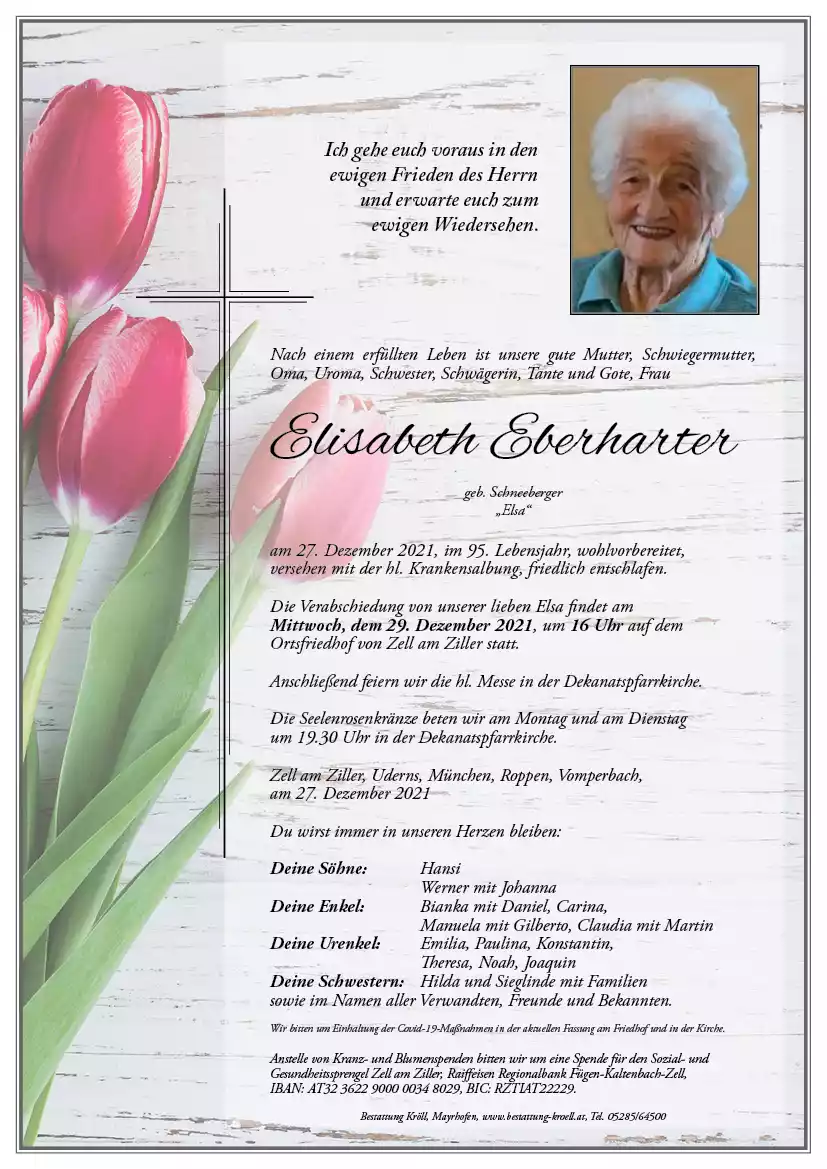 Ich gehe euch voraus in den
ewigen Frieden des Herrn
und erwarte euch zum
ewigen Wiedersehen.
Nach einem erfüllten Leben ist unsere gute Mutter, Schwiegermutter,
Oma, Uroma, Schwester, Schwägerin, Tante und Gote, Frau
Elisabeth Eberharter
geb. Schneeberger
„Elsa“
am 27. Dezember 2021, im 95. Lebensjahr, wohlvorbereitet,
versehen mit der hl. Krankensalbung, friedlich entschlafen.
Die Verabschiedung von unserer lieben Elsa findet am
Mittwoch, dem 29. Dezember 2021, um 16 Uhr auf dem
Ortsfriedhof von Zell am Ziller statt.
Anschließend feiern wir die hl. Messe in der Dekanatspfarrkirche.
Die Seelenrosenkränze beten wir am Montag und am Dienstag
um 19.30 Uhr in der Dekanatspfarrkirche.
Zell am Ziller, Uderns, München, Roppen, Vomperbach,
am 27. Dezember 2021
Du wirst immer in unseren Herzen bleiben:
Deine Söhne: Hansi
Werner mit Johanna
Deine Enkel: Bianka mit Daniel, Carina,
Manuela mit Gilberto, Claudia mit Martin
Deine Urenkel: Emilia, Paulina, Konstantin,
Theresa, Noah, Joaquin
Deine Schwestern: Hilda und Sieglinde mit Familien
sowie im Namen aller Verwandten, Freunde und Bekannten.
Wir bitten um Einhaltung der Covid-19-Maßnahmen in der aktuellen Fassung am Friedhof und in der Kirche.
Anstelle von Kranz- und Blumenspenden bitten wir um eine Spende für den Sozial- und
Gesundheitssprengel Zell am Ziller, Raiffeisen Regionalbank Fügen-Kaltenbach-Zell,
IBAN: AT32 3622 9000 0034 8029, BIC: RZTIAT22229.
Bestattung Kröll, Mayrhofen, www.bestattung-kroell.at, Tel. 05285/64500